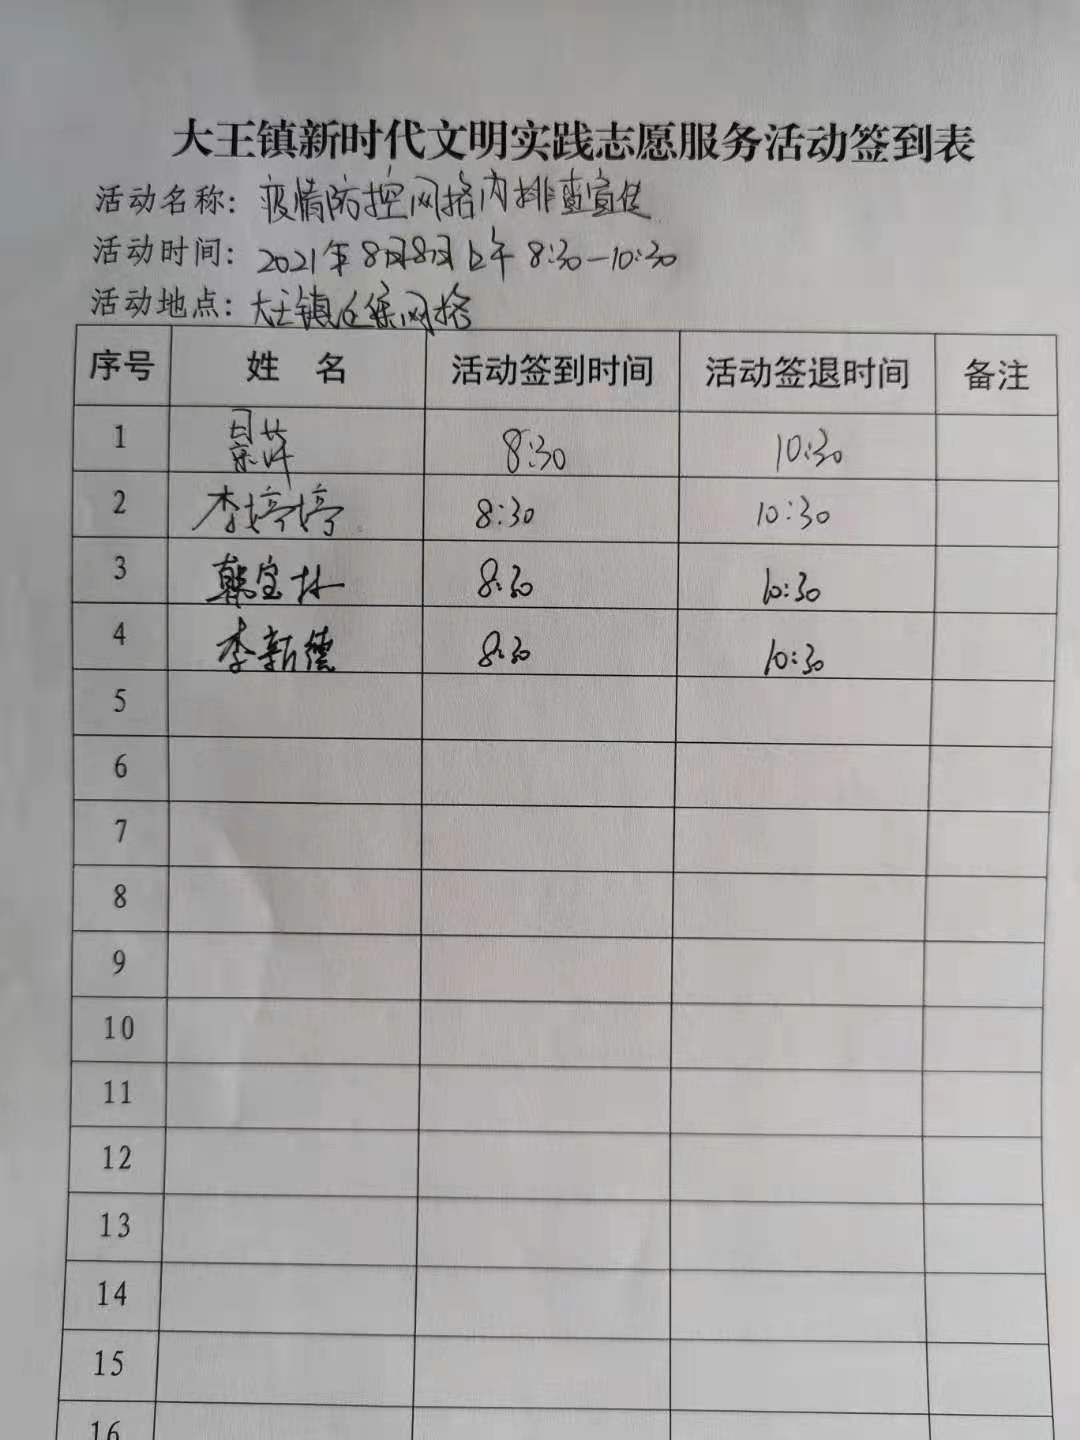 大王镇新时代文明实践志愿服务活动签到表
活动名称: 疫情防控网格内排查宣传
活动时间: 2021年8月8日上午 8:30-10:30
活动地点: 大王镇 网格
序号 姓 名 活动签到时间 活动签退时间 备注
1 景萍 8:30 10:30
2 李婷婷 8:30 10:30
3 韩宝林 8:30 10:30
4 李新德 8:30 10:30
5
6
7
8
9
10
11
12
13
14
15
16